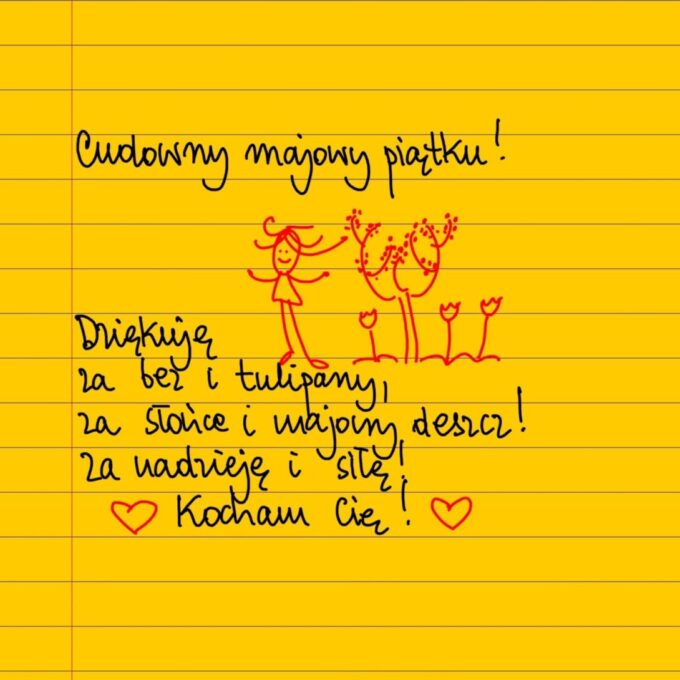 Cudowny majowy piątku!
Dziękuję
za bez i tulipany,
za słońce i majowy deszcz!
za nadzieję i siłę!
Kocham Cię!